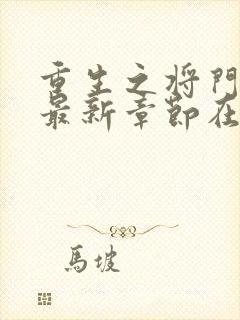 重生之将門
最新章節在
馬坡